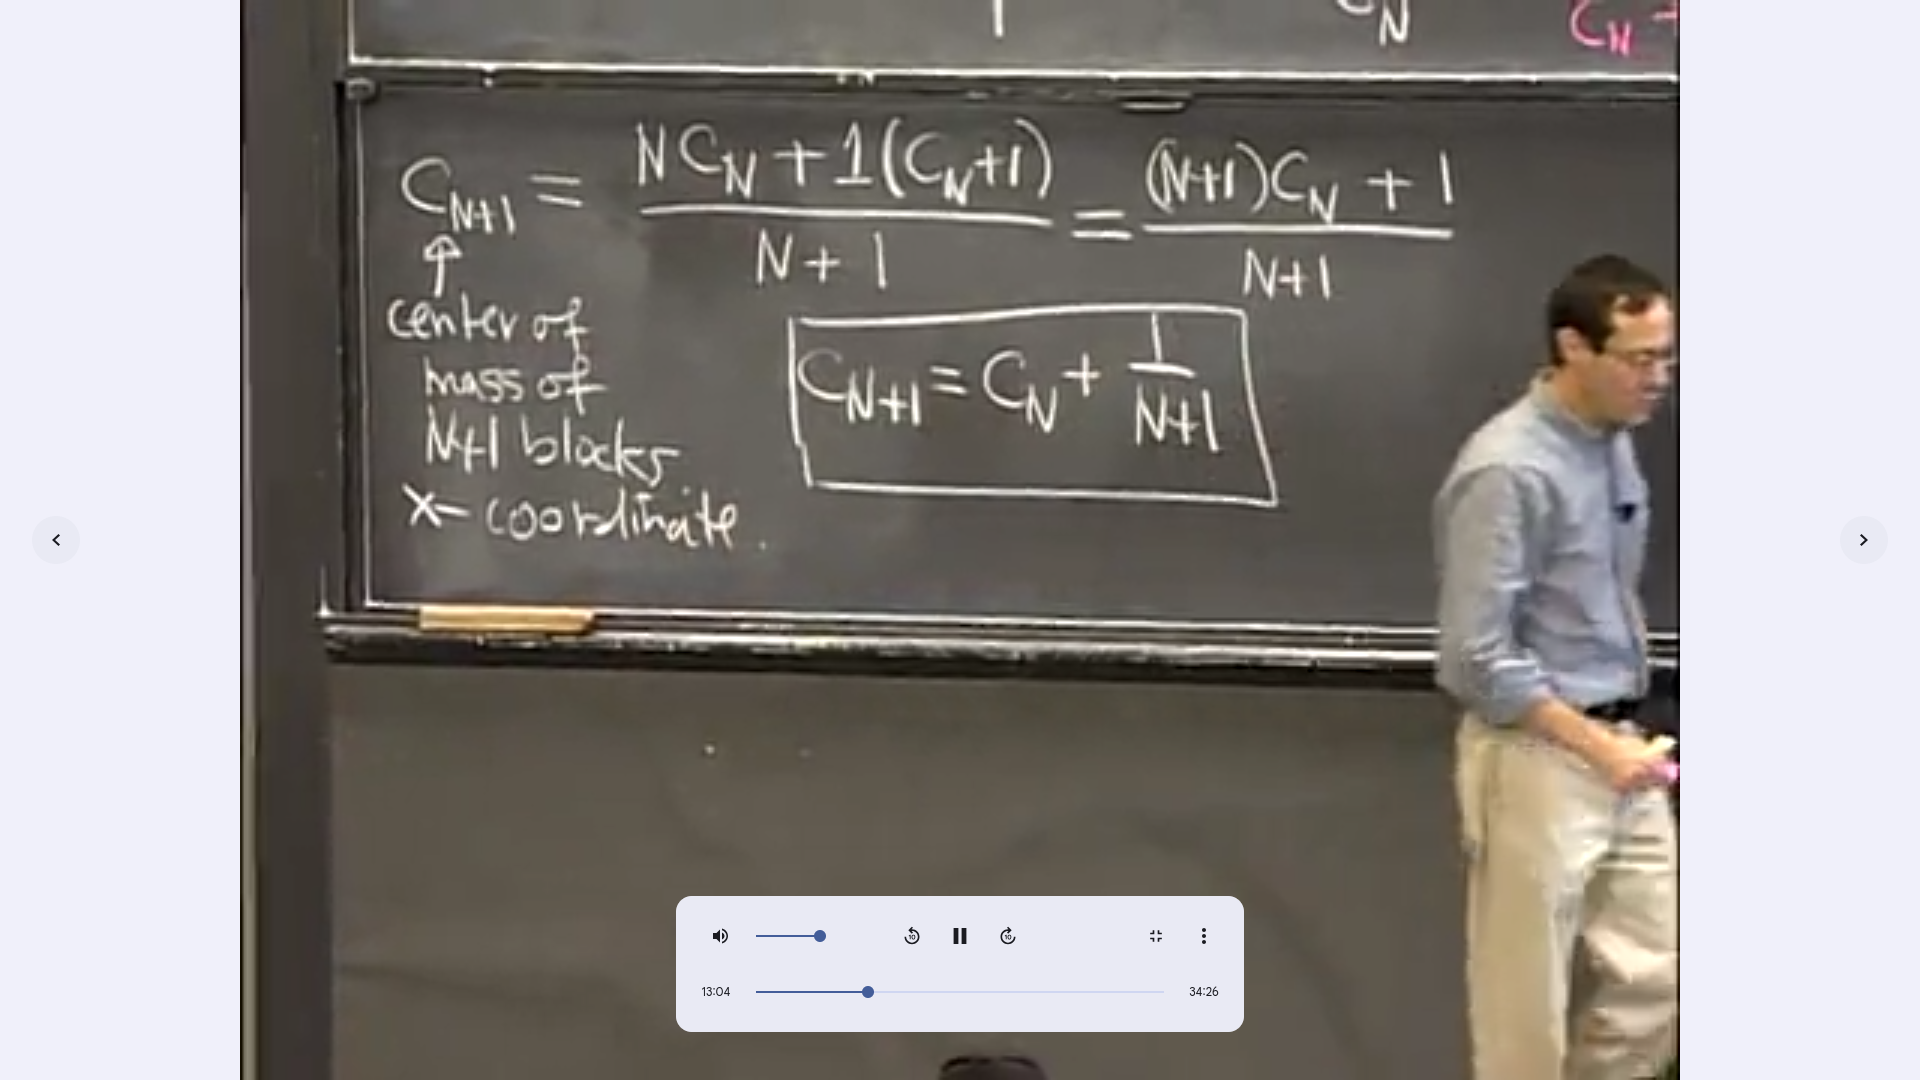 C_N C_N +
C_{N+1} = \frac{N C_N + 1(C_N + 1)}{N + 1} = \frac{(N+1)C_N + 1}{N+1}
↑
center of
mass of
N+1 blocks
x-coordinate.
C_{N+1} = C_N + \frac{1}{N+1}
10 10
13:04 34:26